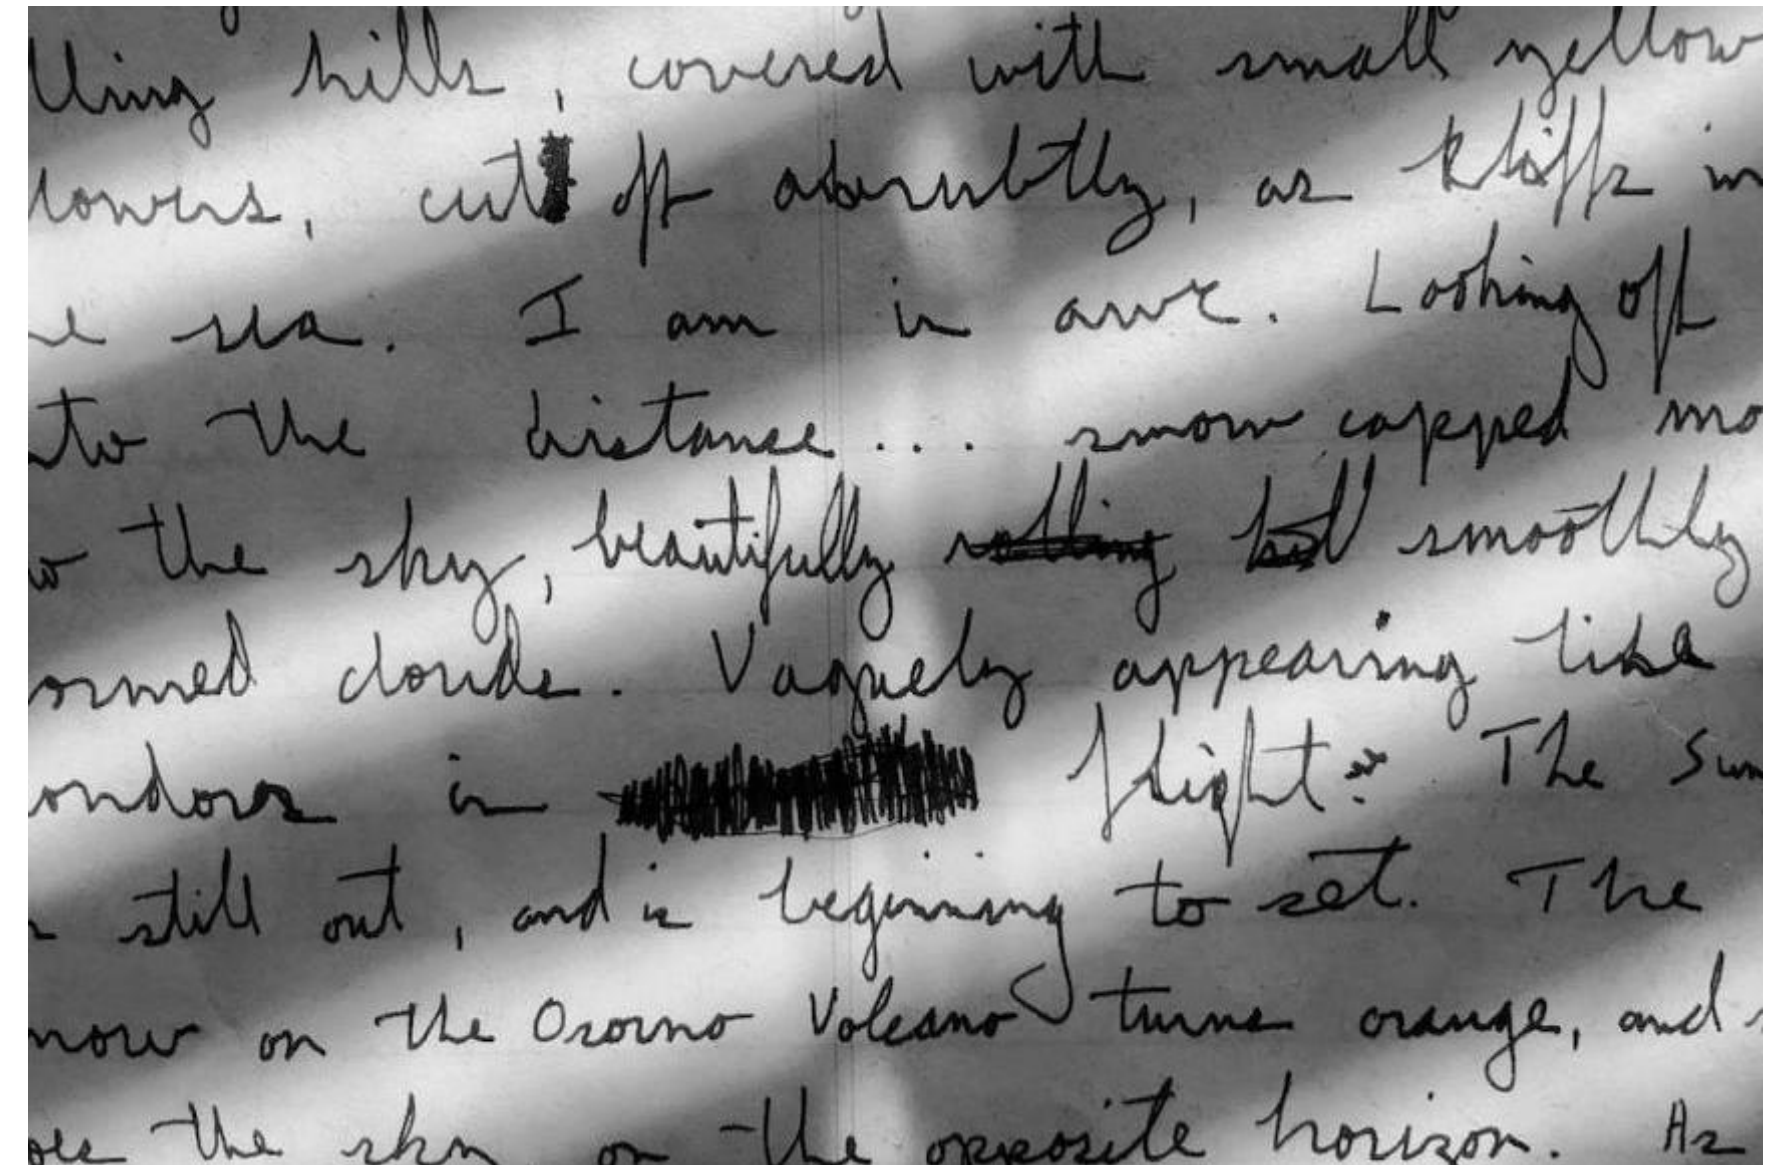 lling hills, covered with small yellow
lowers, cut off abrubtly, as kliffs in
e sea. I am in awe. Looking off
nto the distance... snow capped mo
w the sky, beautifully rolling but smoothly
ormed clouds. Vaguely appearing like
ondors in flight. The Sun
s still out, and is beginning to set. The
now on the Osorno Volcano turns orange, and
oes the sky on the opposite horizon. As